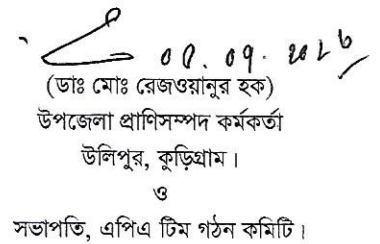 (ডাঃ মোঃ রেজওয়ানুর হক)
উপজেলা প্রাণিসম্পদ কর্মকর্তা
উলিপুর, কুড়িগ্রাম।
ও
সভাপতি, এপিএ টিম গঠন কমিটি।